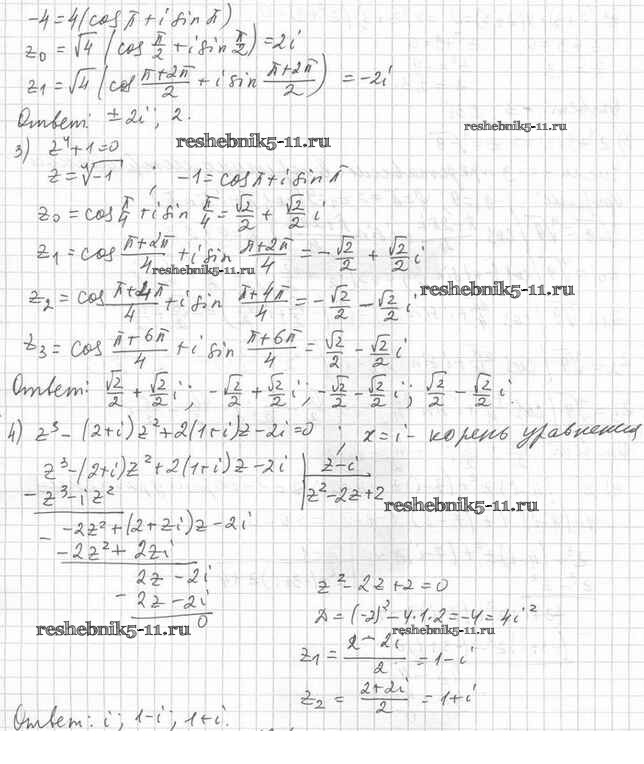 -4=4(cos π+i sin π)
z₀ = √4 (cos π/2 + i sin π/2) = 2i
z₁ = √4 (cos (π+2π)/2 + i sin (π+2π)/2) = -2i
Ответ: ±2i; 2.
reshebnik5-11.ru
reshebnik5-11.ru
3) z⁴+1=0
z = ⁴√-1 ; -1 = cos π + i sin π
z₀ = cos π/4 + i sin π/4 = √2/2 + √2/2 i
z₁ = cos (π+2π)/4 + i sin (π+2π)/4 = -√2/2 + √2/2 i
reshebnik5-11.ru
z₂ = cos (π+4π)/4 + i sin (π+4π)/4 = -√2/2 - √2/2 i
reshebnik5-11.ru
z₃ = cos (π+6π)/4 + i sin (π+6π)/4 = √2/2 - √2/2 i
Ответ: √2/2 + √2/2 i; -√2/2 + √2/2 i; -√2/2 - √2/2 i; √2/2 - √2/2 i.
4) z³ - (2+i)z² + 2(1+i)z - 2i = 0 ; x = i - корень уравнения
z³ - (2+i)z² + 2(1+i)z - 2i | z-i
- z³ - iz² | z² - 2z + 2
reshebnik5-11.ru
- -2z² + (2+2i)z - 2i
-2z² + 2zi
2z - 2i
- 2z - 2i
0
reshebnik5-11.ru
z² - 2z + 2 = 0
D = (-2)² - 4·1·2 = -4 = 4i²
reshebnik5-11.ru
z₁ = (2 - 2i)/2 = 1 - i
z₂ = (2+2i)/2 = 1 + i
Ответ: i; 1-i; 1+i.